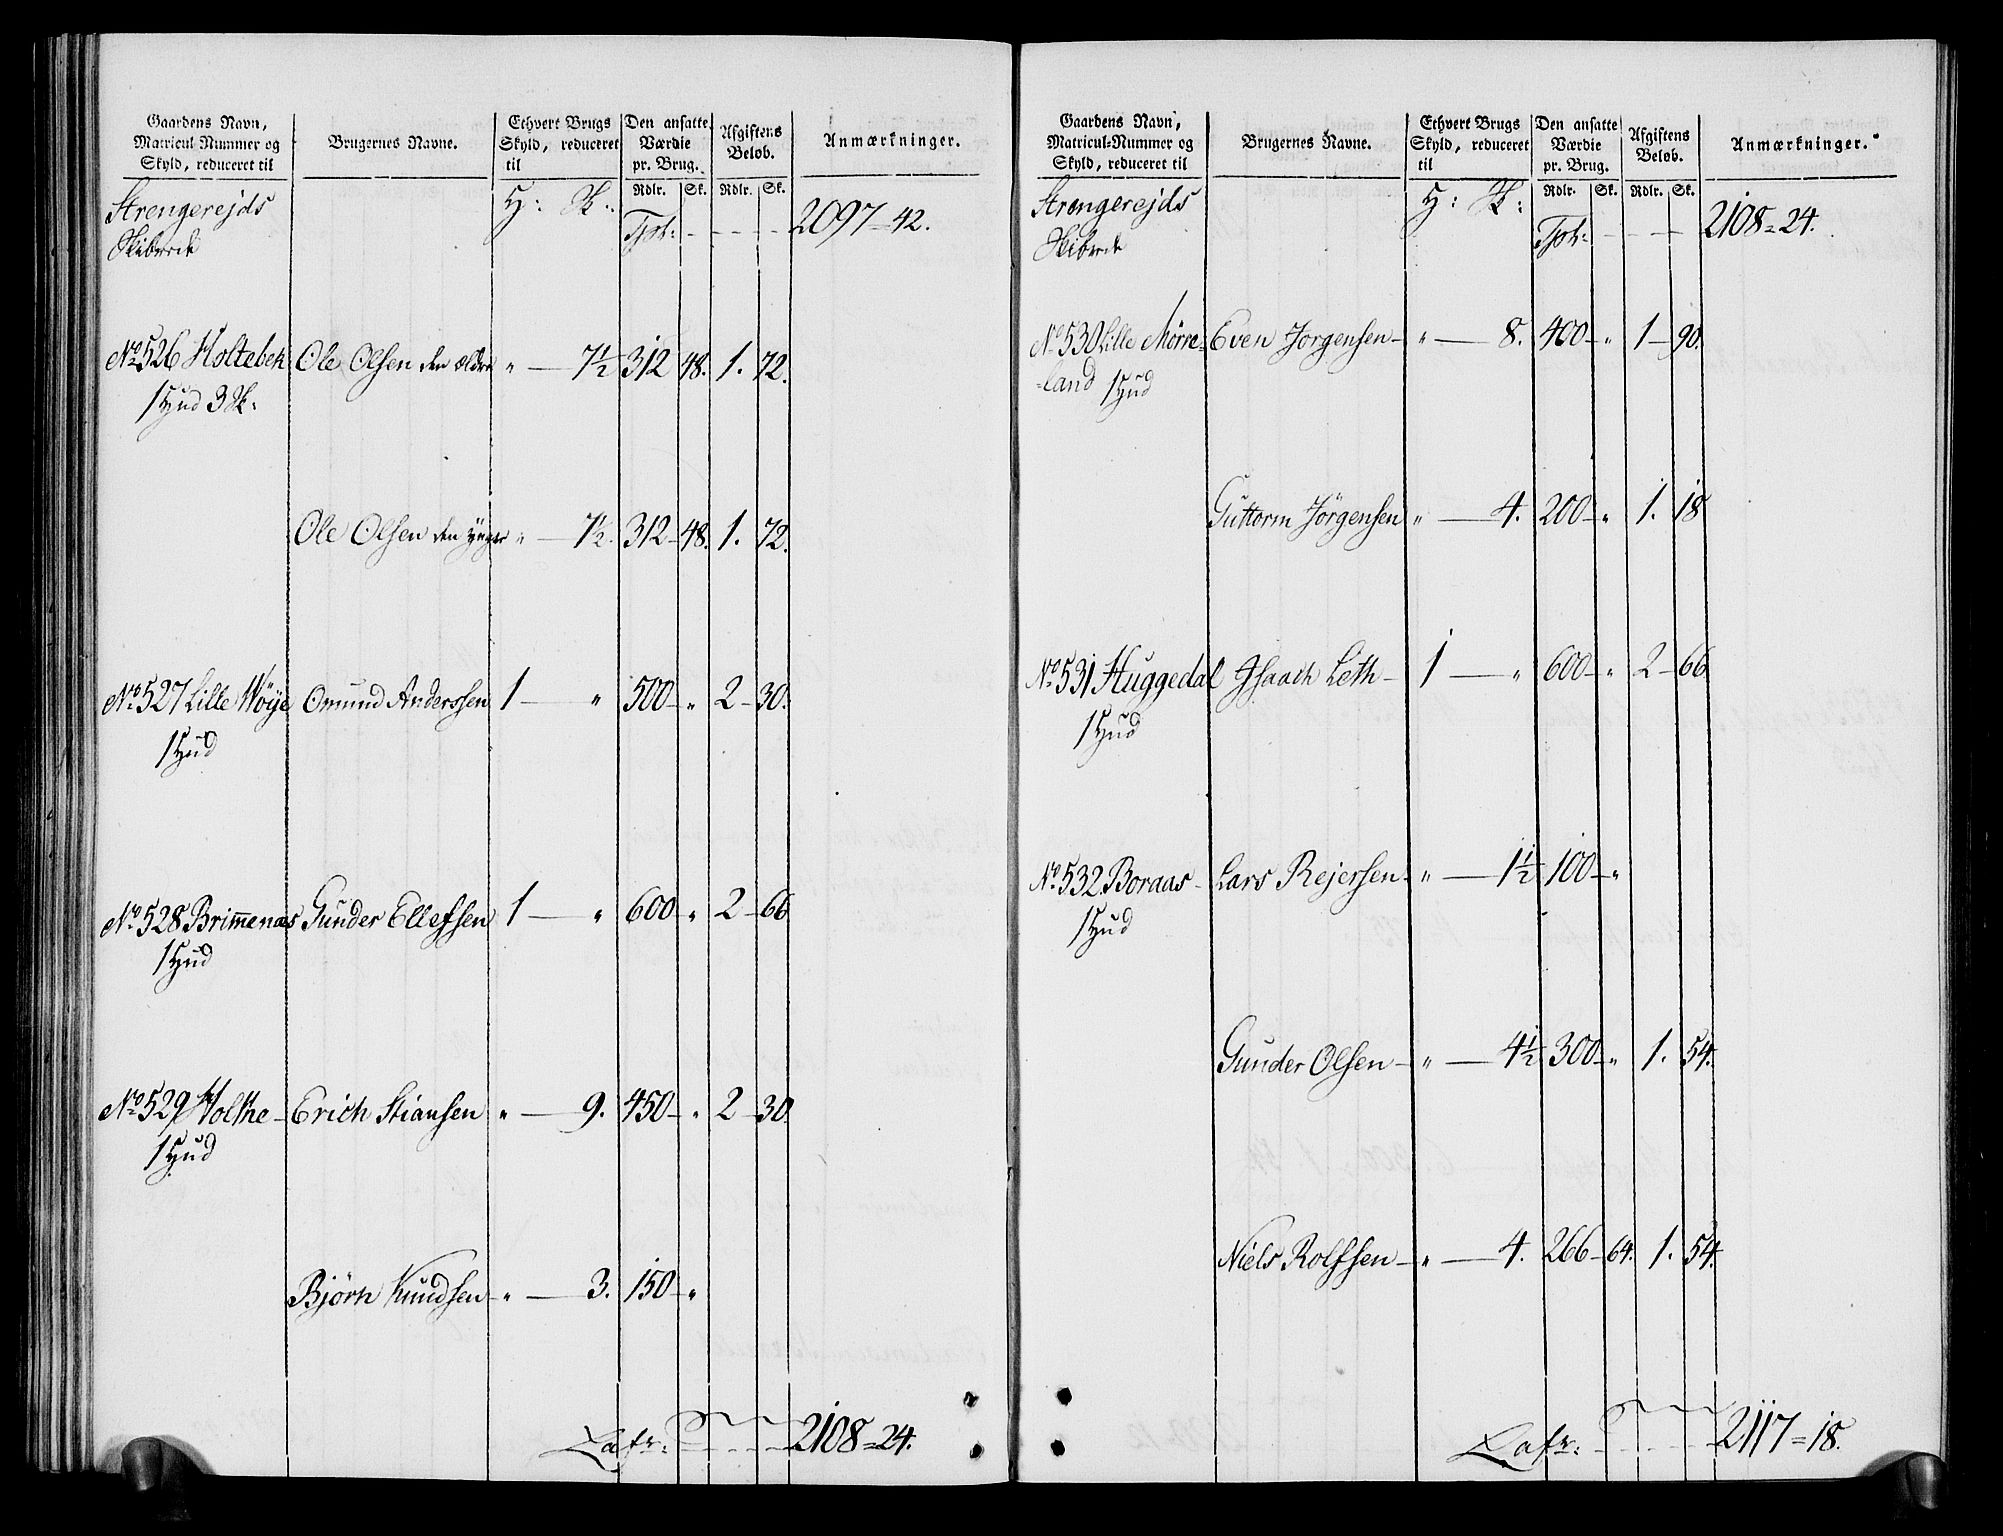 Gaardens Navn,
Matricul-Nummer og
Skyld, reduceret til
Brugernes Navne.
Ethvert Brugs
Skyld, reduceret
til
Den ansatte
Værdie
pr. Brug.
Rdlr. Sk.
Afgiftens
Beløb.
Rdlr. Sk.
Anmærkninger.
Strengerejds
Skibrede
H: Sk:
Tpt: 2097 = 42.
No 526 Holtebek Ole Olsen den ældre „ 7½ 312 48. 1. 72.
1 Hud 3 Sk:
Ole Olsen den yngre „ 7½. 312 48. 1. 72.
No 527 Lille Wøye Omund Anderssen 1 „ 500 „ 2 30.
1 Hud
No 528 Brimenæs Gunder Ellefsen 1 „ 600 „ 2 66
1 Hud
No 529 Holthe Erich Stiansen „ 9. 450 „ 2 30.
1 Hud
Bjørn Knudsen „ 3. 150 „
Lafr: 2108 = 24.
Gaardens Navn,
Matricul-Nummer og
Skyld, reduceret til
Brugernes Navne.
Ethvert Brugs
Skyld, reduceret
til
Den ansatte
Værdie
pr. Brug.
Rdlr. Sk.
Afgiftens
Beløb.
Rdlr. Sk.
Anmærkninger.
Strengerejds
Skibrede
H: Sk:
Tpt: 2108 = 24.
No 530 Lille Mørre- Even Jørgensen „ 8. 400 „ 1 90.
-land 1 Hud
Guttorm Jørgensen „ 4. 200 „ 1. 18
No 531 Huggedal Isaach Leth 1 „ 600 „ 2 66
1 Hud
No 532 Boraas Lars Rejersen „ 1½ 100 „
1 Hud
Gunder Olsen „ 4½ 300 „ 1. 54.
Niels Rolfsen „ 4. 266 64. 1. 54.
Lafr: 2117 = 18.